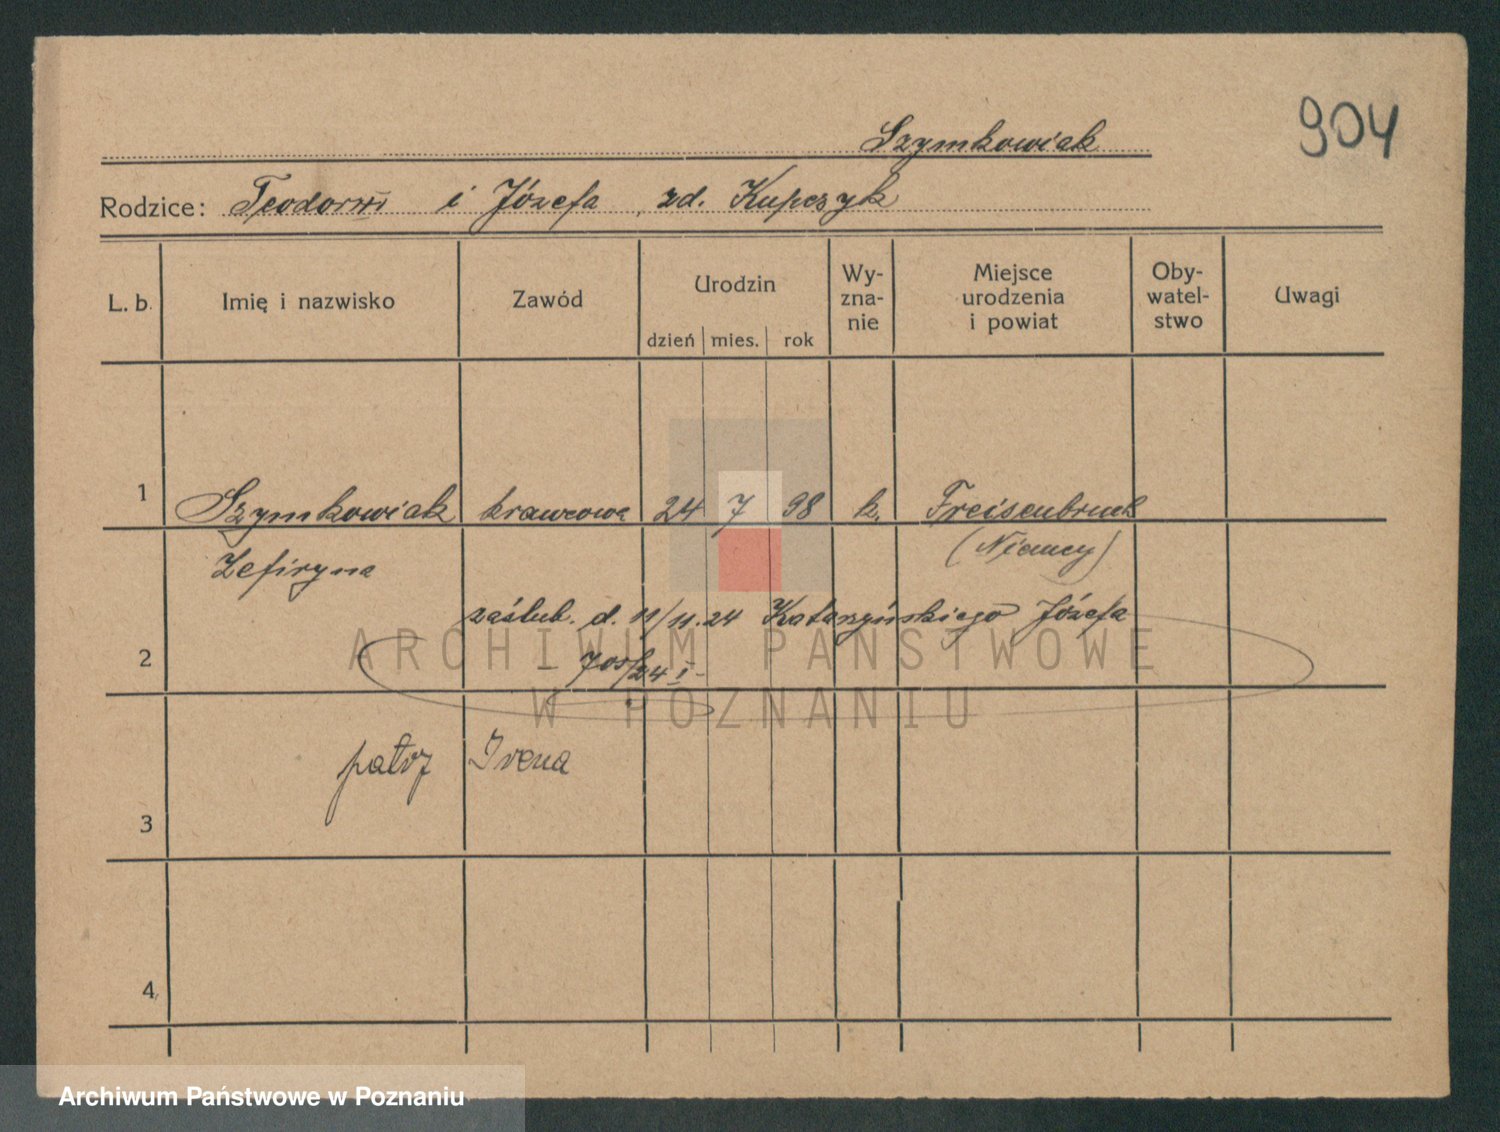 904
Szymkowiak
Rodzice: Teodor i Józefa zd. Kupczyk
L. b. Imię i nazwisko Zawód Urodzin Wy-zna-nie Miejsce urodzenia i powiat Oby-watel-stwo Uwagi
dzień mies. rok
1 Szymkowiak krawcowa 24 7 98 k. Freisenbruch
Zefiryna (Niemcy)
zaślub. d. 11/11.24 Katarzyńskiego Józefa
2 705/24 I
patrz Irena
3
4
ARCHIWUM PAŃSTWOWE
W POZNANIU
Archiwum Państwowe w Poznaniu